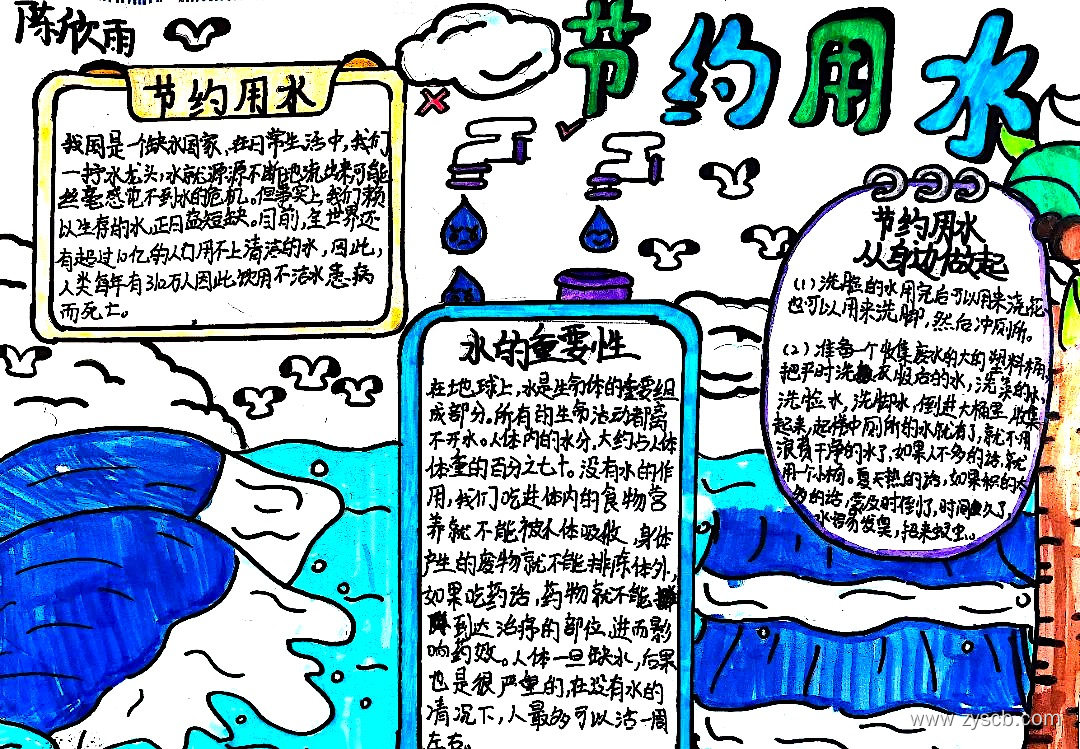 陈欣雨
节约用水
节约用水
我国是一个缺水国家,在日常生活中,我们
一拧水龙头,水就源源不断地流出来可能
丝毫感觉不到水的危机。但事实上我们赖
以生存的水,正日益短缺。目前,全世界还
有超过10亿的人口用不上清洁的水,因此,
人类每年有310万人因此饮用不洁水患病
而死亡。
水的重要性
在地球上,水是生命体的重要组
成部分。所有的生命活动都离
不开水。人体内的水分,大约占人体
体重的百分之七十。没有水的作
用,我们吃进体内的食物营
养就不能被人体吸收 身体
产生的废物就不能排除体外,
如果吃药治,药物就不能
到达治疗的部位,进而影
响药效。人体一旦缺水,后果
也是很严重的,在没有水的
情况下,人最多可以活一周
左右。
节约用水
从身边做起
(1)洗脸的水用完后可以用来浇花
也可以用来洗脚,然后冲厕所。
(2)准备一个收集废水的大的塑料桶,
把平时洗衣服后的水,洗菜的水,
洗脸水,洗脚水,倒进大桶里,收集
起来,起样冲厕所的水就有了,就不用
浪费干净的水了,如果人不多的话,就
用一个小桶。夏天热的话,如果积的太
多的话,需及时倒了,时间久了
水容易发臭,招来蚊虫。
www.zyscb.com